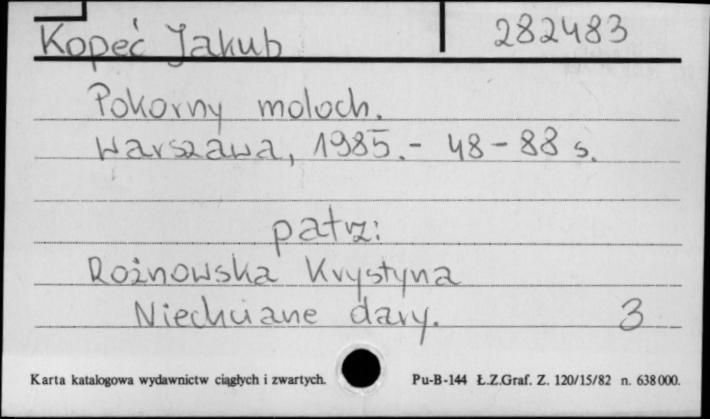 Kopeć Jakub 282483
Pokorny moloch.
Warszawa, 1985.- 48-88 s.
patrz:
Rożnowska Krystyna
Niechciane dary. 3
Karta katalogowa wydawnictw ciągłych i zwartych. Pu-B-144 Ł.Z.Graf. Z. 120/15/82 n. 638000.